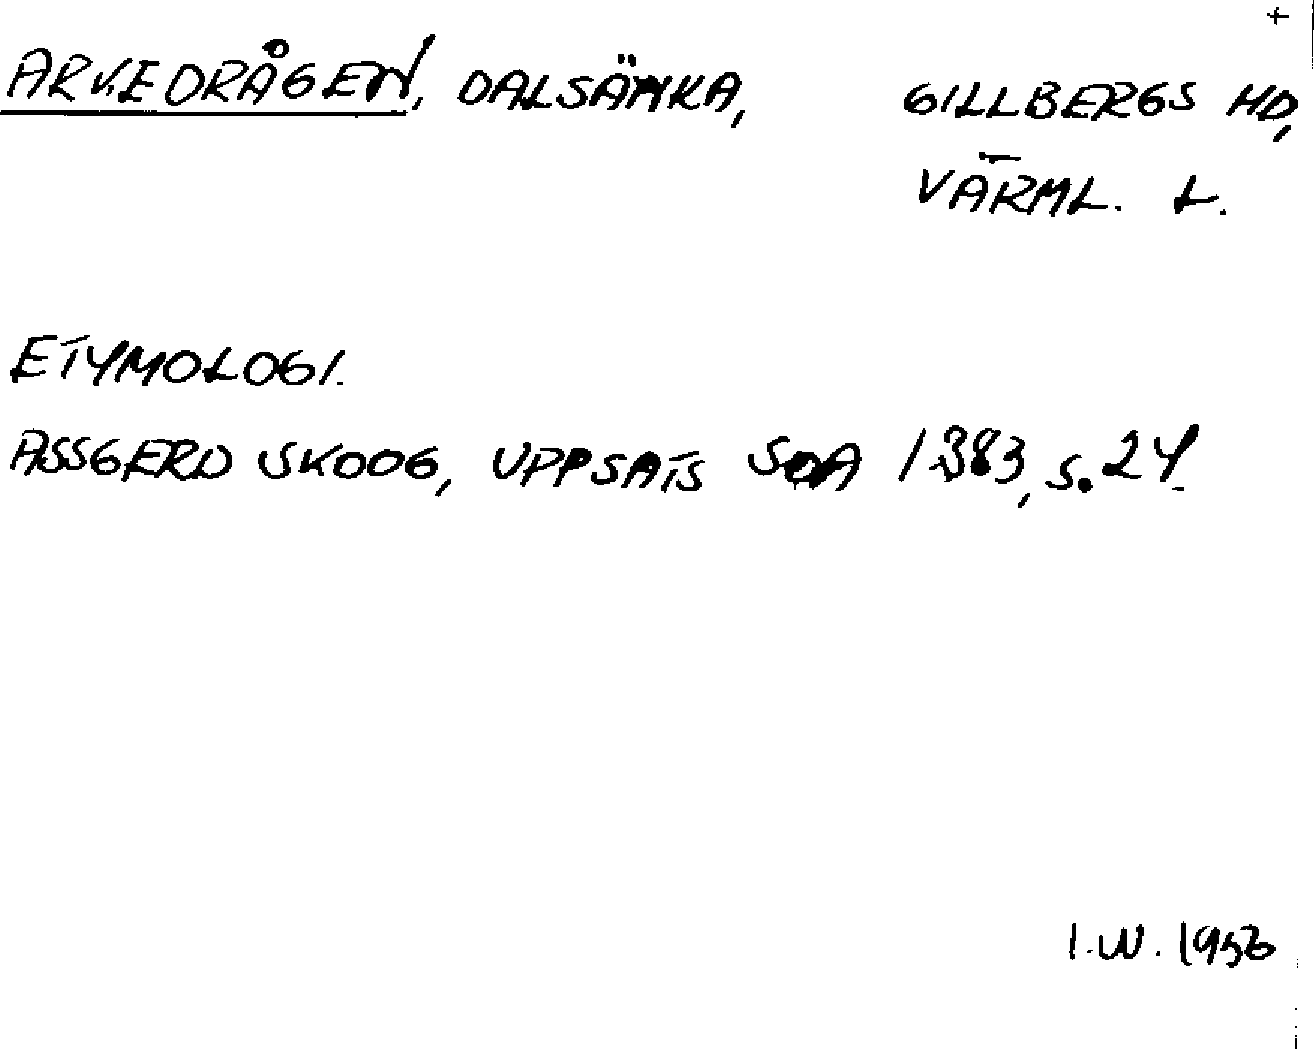 +
ARKEDRÅGEN, DALSÄNKA, GILLBERGS HD,
VÄRML. L.
ETYMOLOGI.
ASSGERD SKOOG, UPPSATS SOA 1383, s. 24.
I.W. 1956